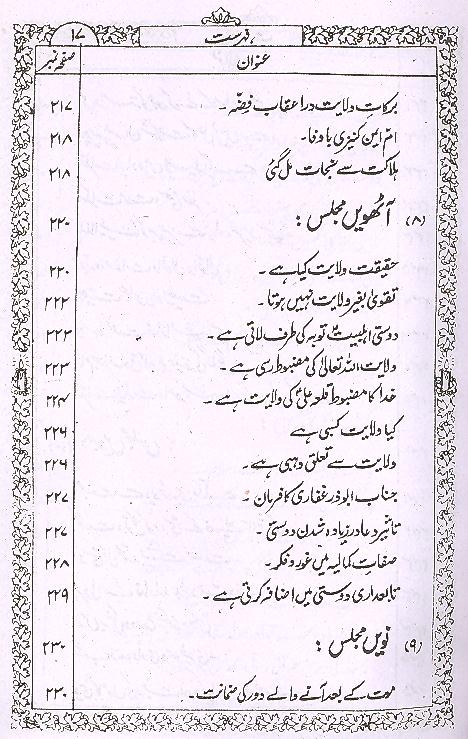 ۱۷ فہرست
صفحہ نمبر عنوان
برکاتِ ولایت در اعقاب فضہ۔ ۲۱۷
ام ایمن کنیزی باوفا۔ ۲۱۸
ہلاکت سے نجات مل گئی ۲۱۸
(۸) آٹھویں مجلس : ۲۲۰
حقیقت ولایت کیا ہے۔ ۲۲۰
تقویٰ بغیر ولایت نہیں ہوتا۔ ۲۲۲
دوستی اہلبیتؑ توبہ کی طرف لاتی ہے۔ ۲۲۳
ولایت اللہ تعالیٰ کی مضبوط رسی ہے۔ ۲۲۳
خدا کا مضبوط قلعہ علیؑ کی ولایت ہے۔ ۲۲۴
کیا ولایت کسبی ہے ۲۲۶
ولایت سے تعلق وہبی ہے۔ ۲۲۶
جناب ابوذر غفاری کا فرمان۔ ۲۲۷
تاثیر دعا در زیادہ شدن دوستی۔ ۲۲۷
صفاتِ کمالیہ میں غور و فکر۔ ۲۲۸
تابعداری دوستی میں اضافہ کرتی ہے۔ ۲۲۹
(۹) نویں مجلس : ۲۳۰
موت کے بعد آنے والے دور کی ضمانت۔ ۲۳۰